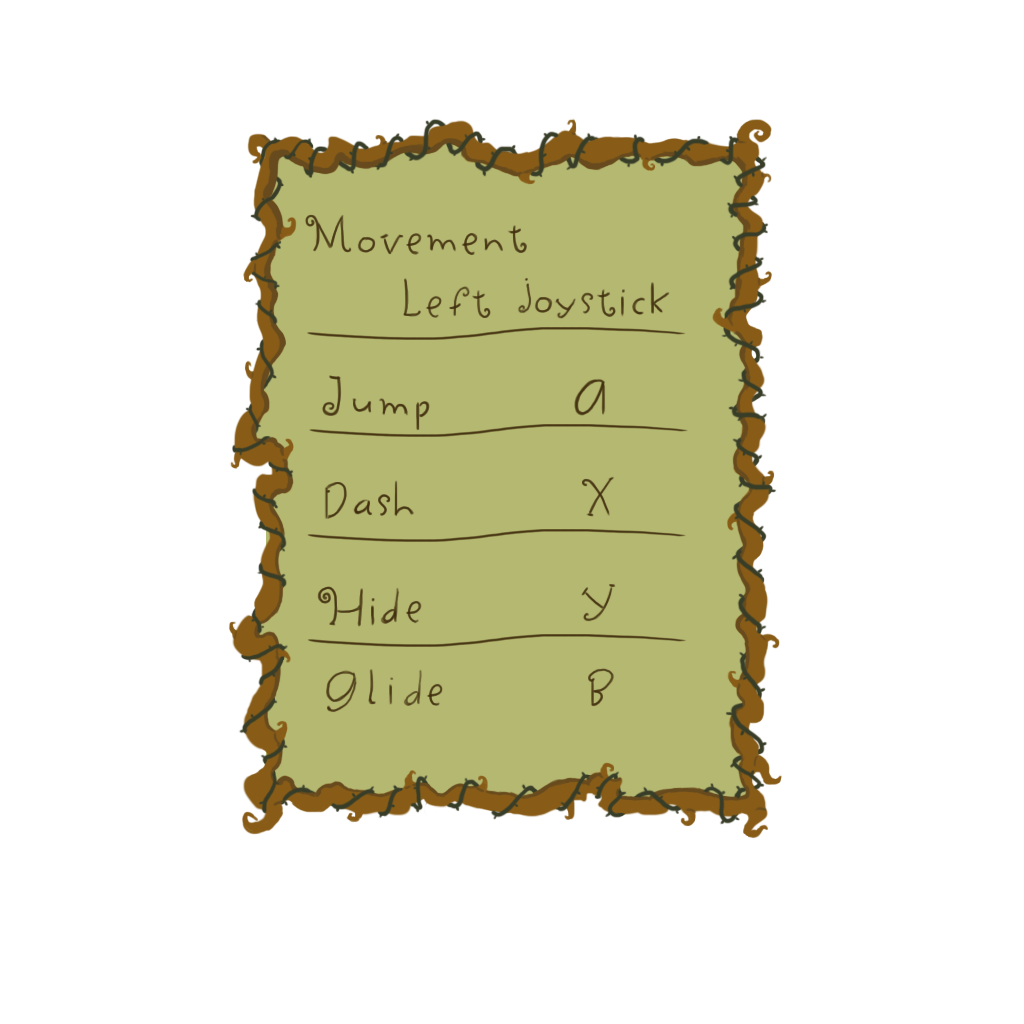 Movement
Left Joystick
Jump A
Dash X
Hide Y
Glide B